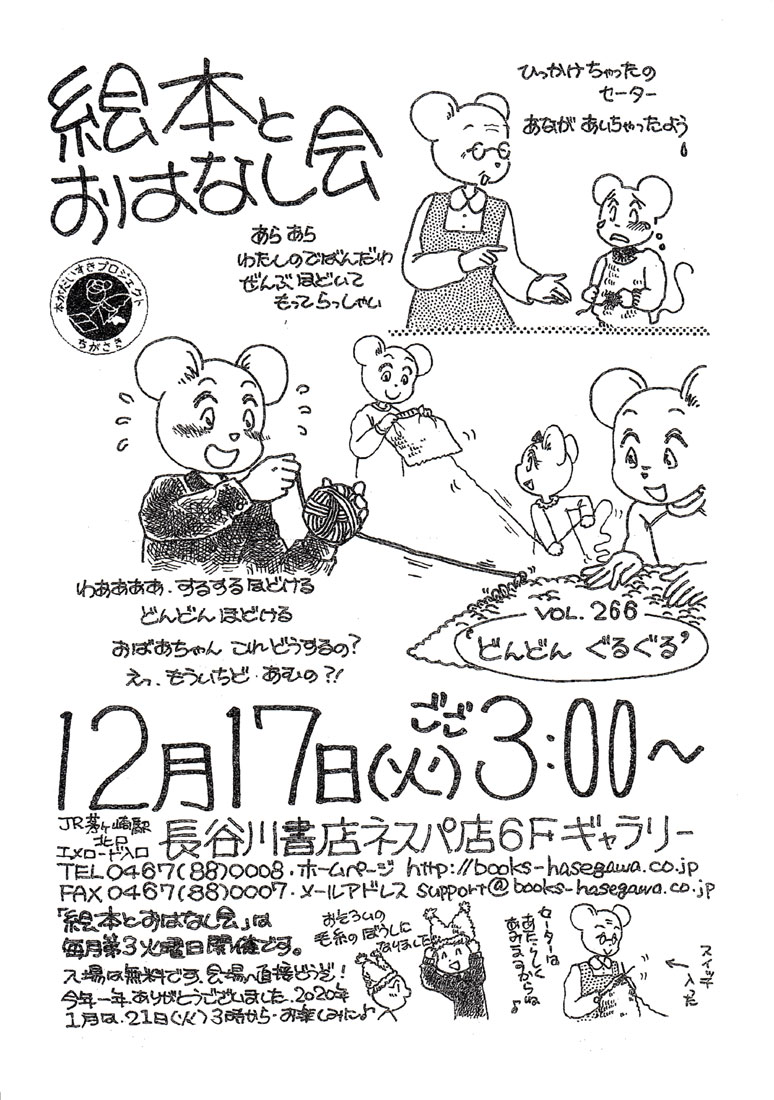 絵本と
おはなし会
ひっかけちゃったの
セーター
あなが あいちゃったよう
あら あら
わたしのでばんだわ
ぜんぶ ほどいて
もってらっしゃい
本がだいすきプロジェクト
ちがさき
わああああ、するする ほどける
どんどん ほどける
おばあちゃん これ どうするの?
えっ、もういちど あむの?!
VOL. 266
‘どんどん ぐるぐる’
12月17日(火)ごご3:00〜
JR茅ヶ崎駅
北口
エメロード入口
長谷川書店ネスパ店6Fギャラリー
TEL 0467(88)0008・ホームページ http://books-hasegawa.co.jp
FAX 0467(88)0007・メールアドレス support@books-hasegawa.co.jp
「絵本とおはなし会」は
毎月第3火曜日開催です。
入場は無料です。会場へ直接どうぞ!
今年一年、ありがとうございました。2020年
1月は、21日(火)3時から・お楽しみに♪
おそろいの
毛糸のぼうしに
なりました
セーターは
あたらしく
あみますからね♪
スイッチ
入った
←